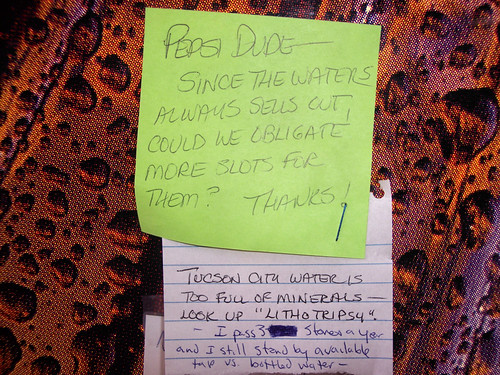 PEPSI DUDE—
SINCE THE WATERS
ALWAYS SELLS OUT!
COULD WE OBLIGATE
MORE SLOTS FOR
THEM? THANKS!
TUCSON CITY WATER IS
TOO FULL OF MINERALS —
LOOK UP "LITHOTRIPSY".
- I pass 3 stones a year
and I still stand by available
tap vs. bottled water -